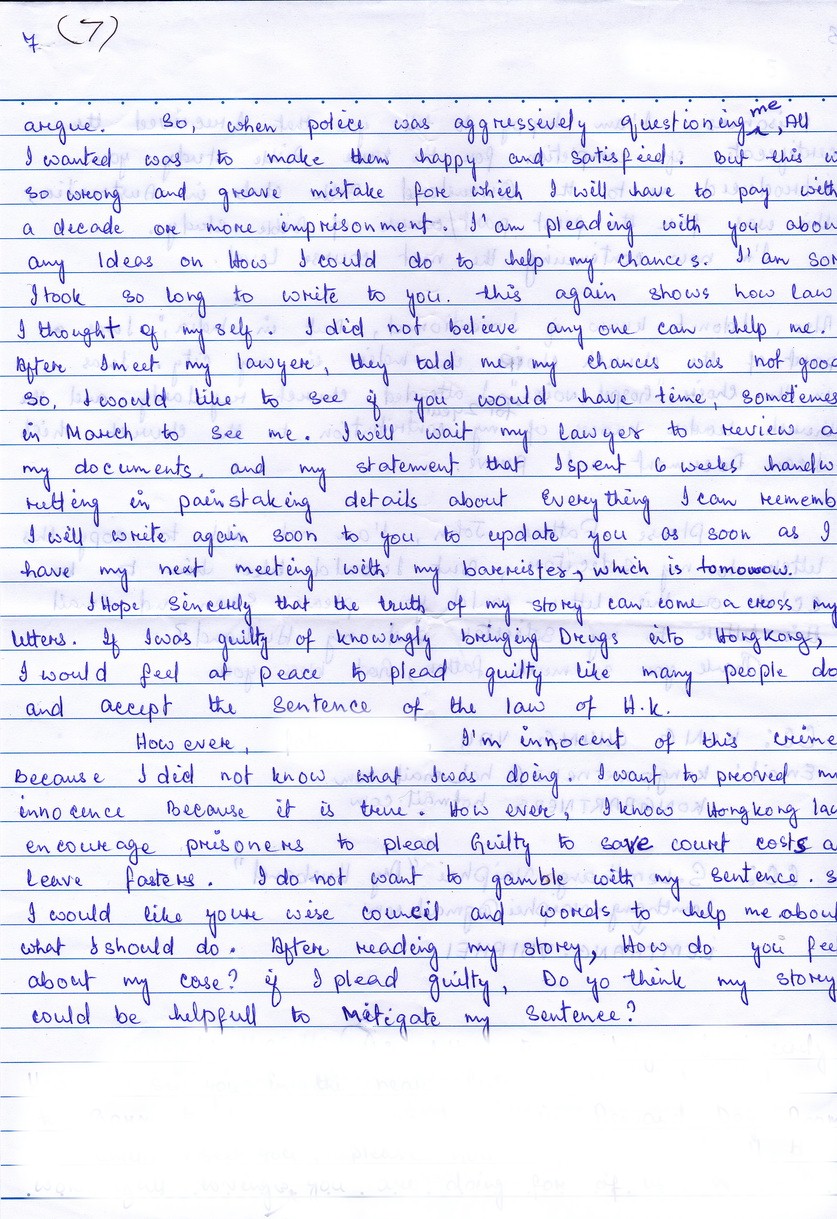 7 (7)
argue. So, when police was aggressively questioning me, All
I wanted was to make them happy and satisfied. But this w
so wrong and greave mistake fore which I will have to pay with
a decade ore more imprisonment. I'am pleading with you abou
any Ideas on How I could do to help my chances. I'am sor
I took so long to write to you. this again shows how law
I thought of myself. I did not believe any one can help me.
After I meet my lawyer, they told me my chances was not good
so, I would like to see if you would have time, sometimes
in March to see me. I will wait my lawyer to review a
my documents. and my statement that I spent 6 weeks handw
ritting in painstaking details about Everything I can rememb
I will write again soon to you to update you as soon as I
have my next meeting with my barrister, which is tomorrow.
I Hope Sincerely that the truth of my story can come a cross my
letters. If I was guilty of knowingly bringing Drugs into Hongkong,
I would feel at peace to plead guilty like many people do
and accept the sentence of the law of H.k.
How ever, I'm innocent of this crime
Because I did not know what I was doing. I want to proved m
innocence Because it is true. How ever, I know Hongkong law
encourage prisoners to plead Guilty to save court costs a
leave fasters. I do not want to gamble with my sentence. s
I would like youre wise council and words to help me about
what I should do. After reading my story, How do you fee
about my case? if I plead guilty, Do yo think my story
could be helpfull to Mitigate my sentence?